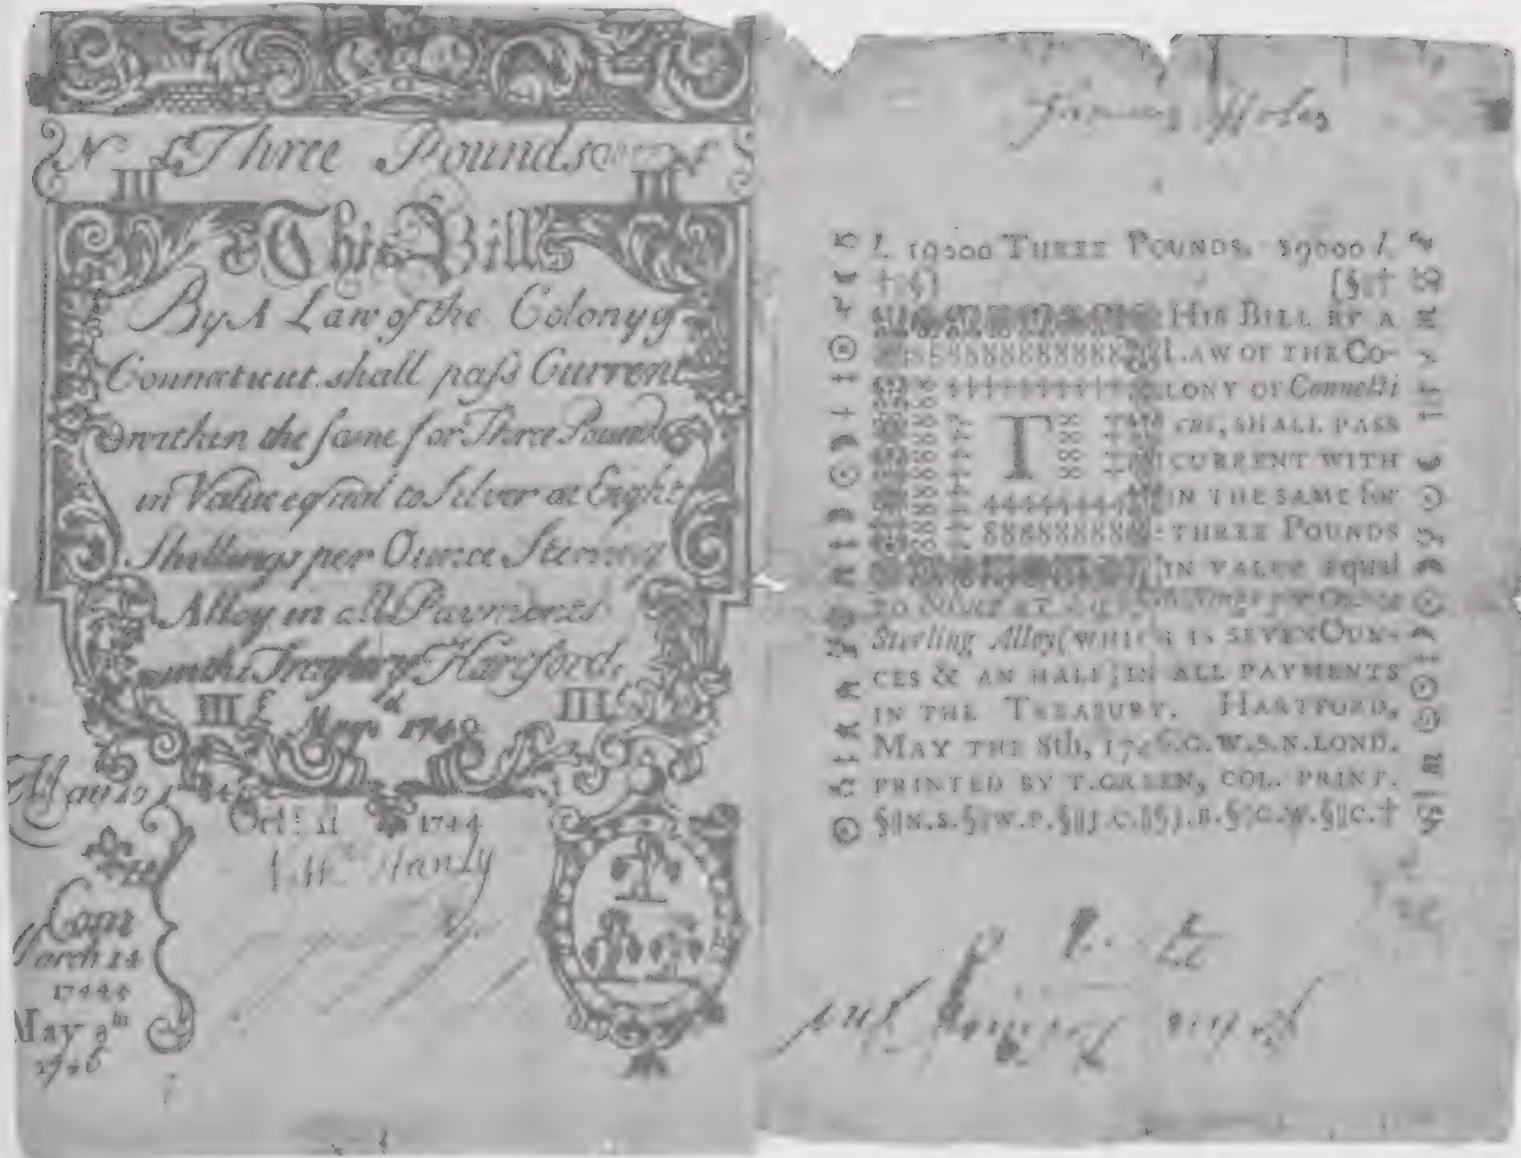 N £ Three Pounds
III III
This Bills
By A Law of the Colony
Connecticut shall paſs Current
within the ſame for Three Pounds
in Value equal to Silver at Eight
Shillings per Ounce Sterling
Alloy in all Payments
in the Treaſury Hartford,
III £ III
1740
Octr 11 1744
Com
March 14
1744
May 8th
1746
L 19000 THREE POUNDS. 19000 L
†‖§] [§‖†
T
HIS BILL BY A
LAW OF THE CO-
LONY OF Connecti
cut, SHALL PASS
CURRENT WITH
IN THE SAME for
THREE POUNDS
IN VALUE equal
TO Silver AT Shillings per Ounce
Sterling Alloy (WHICH IS SEVEN OUN-
CES & AN HALF) IN ALL PAYMENTS
IN THE TREASURY. HARTFORD,
MAY THE 8th, 1746. G.W.S.N.LOND.
PRINTED BY T.GREEN, COL. PRINT.
§‖N.S.§‖W.P.§‖J.C.‖§J.B.§‖G.W.§‖C.†